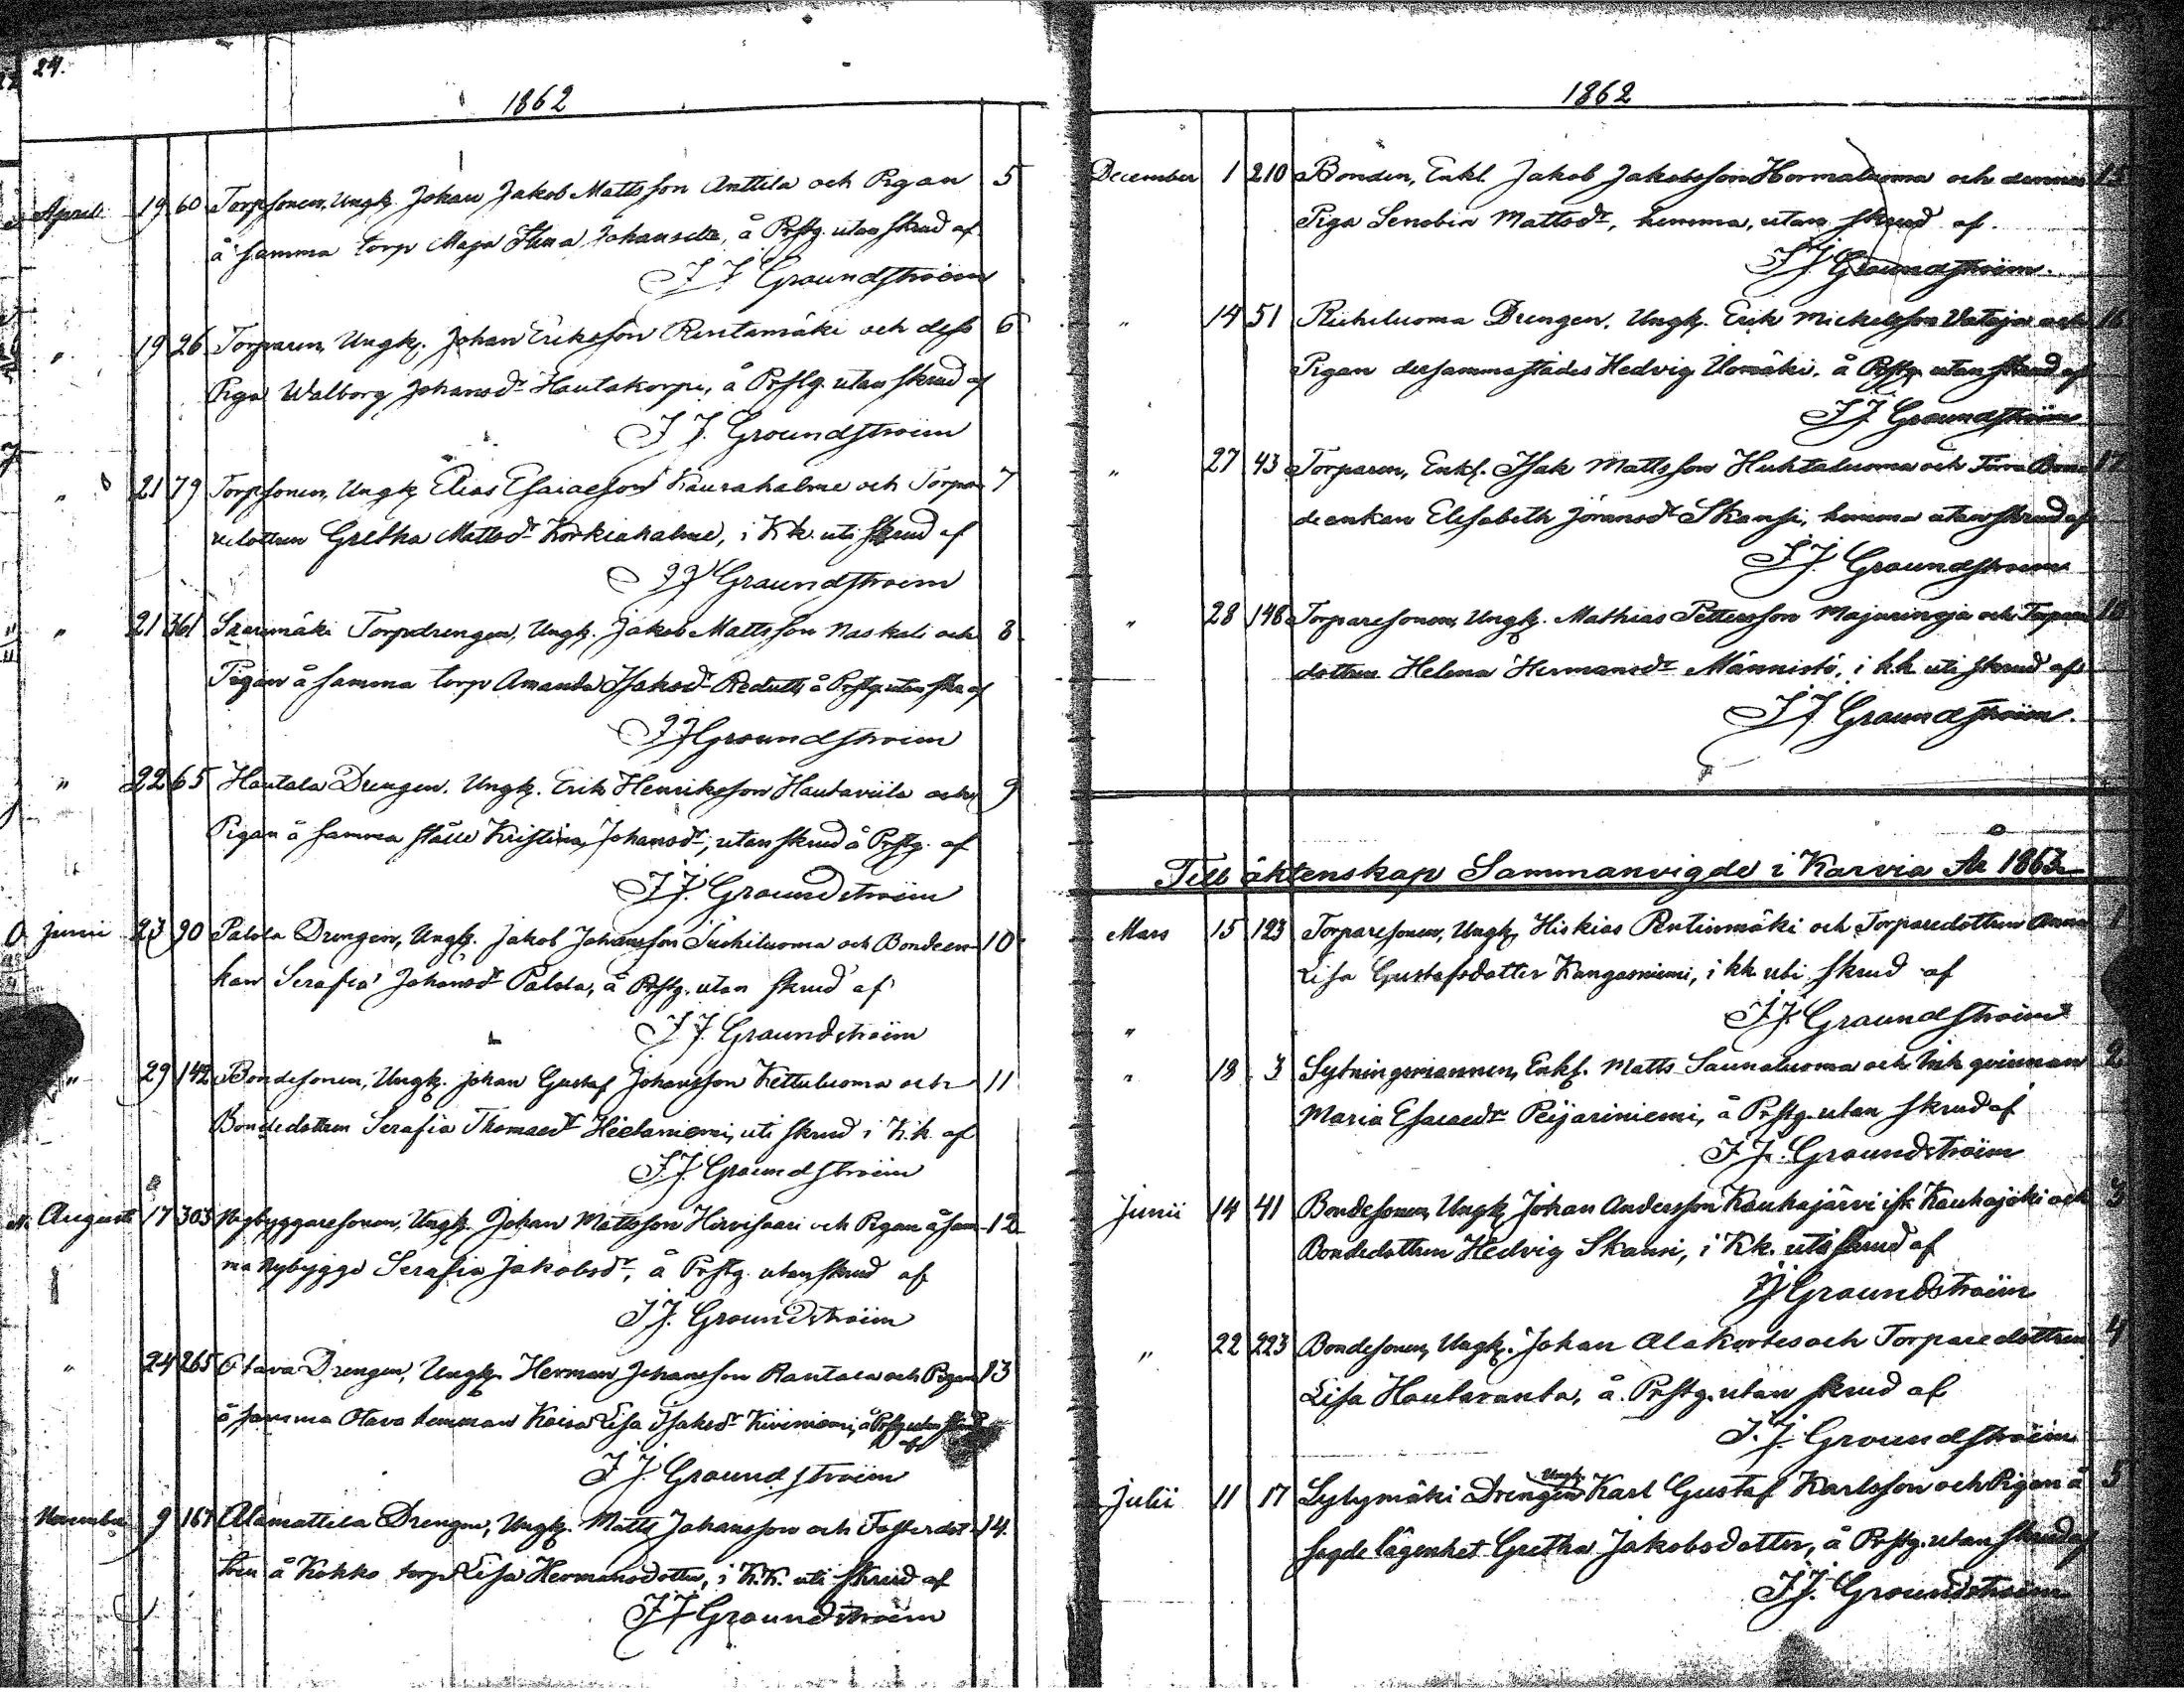 24.
1862
April 19 60 Torpsonen, Ungk. Johan Jakob Mattsson Anttila och Pigan 5
å samma torp Maja Johansdr, å Prstg. utan skrud af
J J Groundstroëm
" 19 26 Torparen, Ungk. Johan Eriksson Rentamäki och dess 6
Piga Walborg Johansdr Hautakorpi, å Prstg. utan skrud af
J J. Groundstroëm
" 21 79 Torpsonen, Ungk. Elias Esaiaeson Kaurahalme och Torpa- 7
redottren Gretha Mattsdr Korkiahalme, i Kk. uti skrud af
J J Groundstroëm
" 21 361 Torpdrengen, Ungk. Jakob Mattsson Naskali och 8
Pigan å samma torp Amanda Isaksdr Redutt, å Prstg utan skr af
J J Groundstroëm
" 22 65 Hautala Drengen, Ungk. Erik Henriksson Hautaviita och 9
Pigan å samma ställe Kristina Johansdr, utan skrud å Prstg. af
J J. Groundstroëm
Junii 23 90 Palola Drengen, Ungk. Jakob Johansson och Bondeen- 10
kan Serafia Johansdr Palola, å Prstg. utan skrud af
J J. Groundstroëm
" 29 142 Bondesonen, Ungk. Johan Gustaf Johansson Kettuluoma och 11
Bondedottren Serafia Thomaedr Hietaniemi, uti skrud i K.k. af
J J Groundstroëm
Augusti 17 303 Nybyggaresonen, Ungk. Johan Mattsson Hirvisaari och Pigan å sam- 12
ma Nybygge Serafia Jakobsdr, å Prstg. utan skrud af
J J. Groundstroëm
" 24 265 Otava Drengen, Ungk. Herman Johansson Rantala och Pigan 13
å samma Otava hemman Kaisa Lisa Isaksdr Kiviniemi, å Prstg utan skrud
af
J J. Groundstroëm
November 9 167 Alamattila Drengen, Ungk. Matts Johansson och Fosterdot- 14.
tren å Kokko torp Lisa Hermansdotter, i K.K. uti skrud af
J J Groundstroëm
1862
December 1 210 Bonden, Enkl. Jakob Jakobsson Hormaluoma och dennes 15
Piga Senobia Mattsdr, hemma, utan skrud af.
J J Groundstroëm.
" 14 51 Riihiluoma Drengen, Ungk. Erik Mickelsson Vataja och 16
Pigan dersammastädes Hedvig Ulomäki, å Prstg. utan skrud af
J J Groundstroëm
" 27 43 Torparen, Enkl. Isak Mattsson Huhtaluoma och Bon- 17
deenkan Elisabeth Jöransdr Skansi, hemma utan skrud af
J J. Groundstroëm
" 28 148 Torparesonen, Ungk. Mathias Pettersson Majurinoja och Torpare 18
dottren Helena Hermansdr Männistö, i k.k. uti skrud af
J J Groundstroëm.
Till äktenskap Sammanvigde i Karvia År 1863
Mars 15 123 Torparesonen, Ungk. Hiskias Rentinmäki och Torparedottren Anna 1
Lisa Gustafsdotter Kangasniemi, i kk uti skrud af
J J. Groundstroëm
"
" 18 3 Sytningsmannen, Enkl. Matts Saunaluoma och Inh. qvinnan 2
Maria Esaiaedr Peijariniemi, å Prstg. utan skrud af
J J. Groundstroëm
Junii 14 41 Bondesonen, Ungk. Johan Andersson Kauhajärvi ifr. Kauhajoki och 3
Bondedottren Hedvig Skansi, i Kk. uti skrud af
J J Groundstroëm
" 22 223 Bondesonen, Ungk. Johan Alakortes och Torparedottren 4
Lisa Hautaranta, å Prstg. utan skrud af
J. J. Groundstroëm
Julii 11 17 Lylymäki Drengen Ungk. Karl Gustaf Karlsson och Pigan å 5
sagde lägenhet Gretha Jakobsdotter, å Prstg. utan skrud af
J J. Groundstroëm